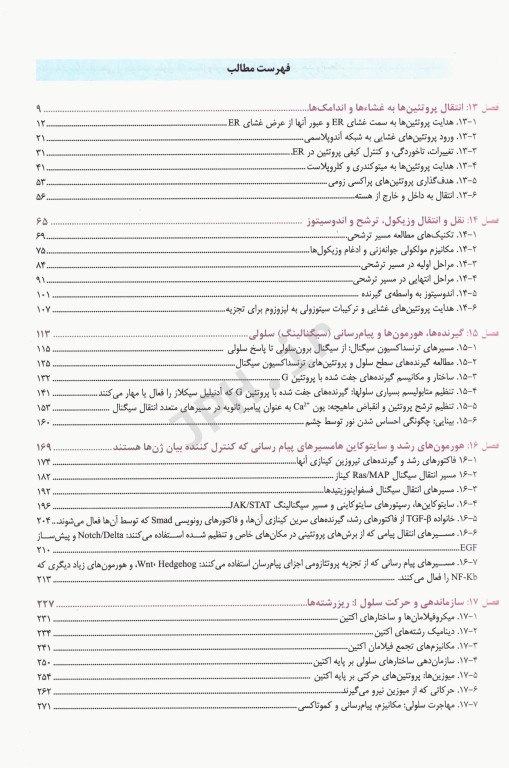 فهرست مطالب
فصل ۱۳: انتقال پروتئین‌ها به غشاءها و اندامک‌ها ۹
۱۳-۱. هدایت پروتئین‌ها به سمت غشای ER و عبور آنها از عرض غشای ER ۱۲
۱۳-۲. ورود پروتئین‌های غشایی به شبکه آندوپلاسمی ۲۱
۱۳-۳. تغییرات، تاخوردگی، و کنترل کیفی پروتئین در ER ۳۱
۱۳-۴. هدایت پروتئین‌ها به میتوکندری و کلروپلاست ۴۱
۱۳-۵. هدف‌گذاری پروتئین‌های پراکسی زومی ۵۳
۱۳-۶. انتقال به داخل و خارج از هسته ۵۶
فصل ۱۴: نقل و انتقال وزیکول، ترشح و اندوسیتوز ۶۵
۱۴-۱. تکنیک‌های مطالعه مسیر ترشحی ۶۹
۱۴-۲. مکانیزم مولکولی جوانه‌زنی و ادغام وزیکول‌ها ۷۵
۱۴-۳. مراحل اولیه در مسیر ترشحی ۸۴
۱۴-۴. مراحل انتهایی در مسیر ترشحی ۹۱
۱۴-۵. اندوسیتوز به واسطه‌ی گیرنده ۱۰۱
۱۴-۶. هدایت پروتئین‌های غشایی و ترکیبات سیتوزولی به لیزوزوم برای تجزیه ۱۰۷
فصل ۱۵: گیرنده‌ها، هورمون‌ها و پیام‌رسانی (سیگنالینگ) سلولی ۱۱۳
۱۵-۱. مسیرهای ترنسداکسیون سیگنال: از سیگنال برون‌سلولی تا پاسخ سلولی ۱۱۵
۱۵-۲. مطالعه گیرنده‌های سطح سلول و پروتئین‌های ترنسداکسیون سیگنال ۱۲۵
۱۵-۳. ساختار و مکانیسم گیرنده‌های جفت شده با پروتئین G ۱۳۲
۱۵-۴. تنظیم متابولیسم بسیاری سلولها: گیرنده‌های جفت شده با پروتئین G که آدنیلیل سیکلاز را فعال یا مهار می‌کنند ۱۴۱
۱۵-۵. تنظیم ترشح پروتئین و انقباض ماهیچه: یون Ca²⁺ به عنوان پیامبر ثانویه در مسیرهای متعدد انتقال سیگنال ۱۵۳
۱۵-۶. بینایی: چگونگی احساس شدن نور توسط چشم ۱۶۰
فصل ۱۶: هورمون‌های رشد و سایتوکاین هامسیرهای پیام رسانی که کنترل کننده بیان ژن‌ها هستند ۱۶۹
۱۶-۱. فاکتورهای رشد و گیرنده‌های تیروزین کینازی آنها ۱۷۴
۱۶-۲. مسیر انتقال سیگنال Ras/MAP کیناز ۱۸۲
۱۶-۳. مسیرهای انتقال سیگنال فسفواینوزیتیدها ۱۹۲
۱۶-۴. سایتوکاین‌ها، رسپتورهای سایتوکاینی و مسیر سیگنالینگ JAK/STAT ۱۹۶
۱۶-۵. خانواده TGF-β از فاکتورهای رشد، گیرنده‌های سرین کینازی آن‌ها، و فاکتورهای رونویسی Smad که توسط آن‌ها فعال می‌شوند ۲۰۴
۱۶-۶. مسیرهای انتقال پیامی که از برش‌های پروتئینی در مکان‌های خاص و تنظیم شده استفاده می‌کنند: Notch/Delta و پیش‌ساز
EGF ۲۱۰
۱۶-۷. مسیرهای پیام رسانی که از تجزیه پروتئازومی اجزای پیام‌رسان استفاده می‌کنند: Wnt، Hedgehog، و هورمون‌های زیاد دیگری که
NF-Kb را فعال می‌کنند. ۲۱۳
فصل ۱۷: سازماندهی و حرکت سلول I: ریزرشته‌ها ۲۲۷
۱۷-۱. میکروفیلامان‌ها و ساختارهای اکتین ۲۳۱
۱۷-۲. دینامیک رشته‌های اکتین ۲۳۴
۱۷-۳. مکانیزم‌های تجمع فیلامان اکتین ۲۴۱
۱۷-۴. سازمان‌دهی ساختارهای سلولی بر پایه اکتین ۲۵۰
۱۷-۵. میوزین‌ها: پروتئین‌های حرکتی بر پایه اکتین ۲۵۴
۱۷-۶. حرکاتی که از میوزین نیرو می‌گیرند ۲۶۲
۱۷-۷. مهاجرت سلولی: مکانیزم، پیام‌رسانی و کموتاکسی ۲۷۱